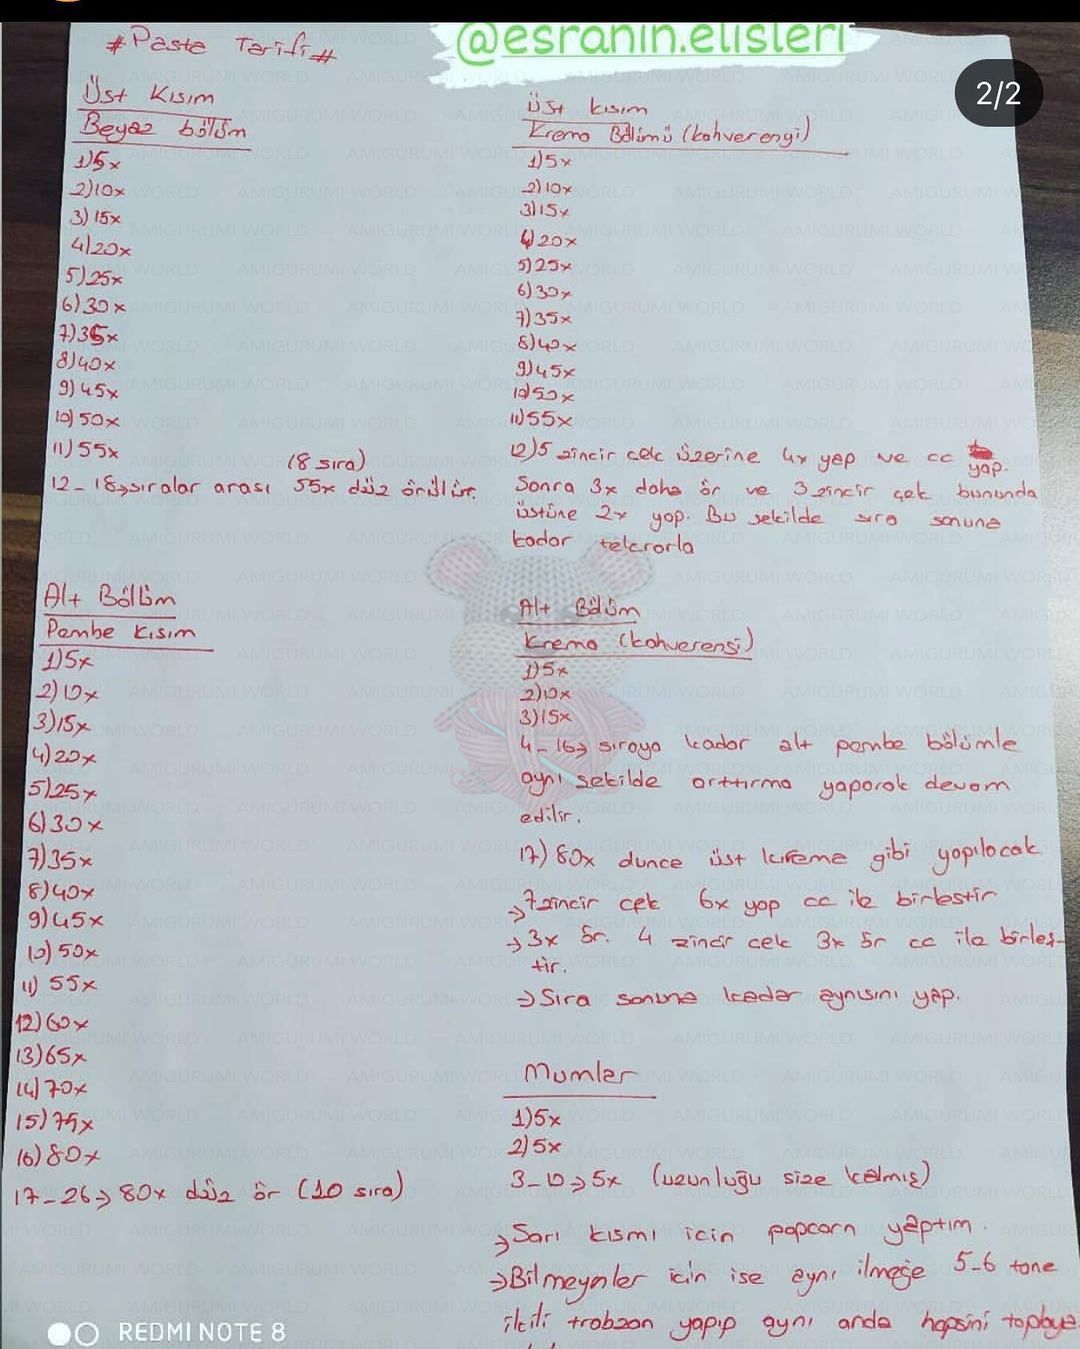 @esranin.elisleri
2/2
#Pasta Tarifi#
Üst Kısım
Beyaz bölüm
1)5x
2)10x
3)15x
4)20x
5)25x
6)30x
7)35x
8)40x
9)45x
10)50x
11)55x
(8 sıra)
12-18→sıralar arası 55x düz örülür.
Alt Bölüm
Pembe Kısım
1)5x
2)10x
3)15x
4)20x
5)25x
6)30x
7)35x
8)40x
9)45x
10)50x
11)55x
12)60x
13)65x
14)70x
15)75x
16)80x
17-26→80x düz ör (10 sıra)
Üst kısım
Krema Bölümü (kahverengi)
1)5x
2)10x
3)15x
4)20x
5)25x
6)30x
7)35x
8)40x
9)45x
10)50x
11)55x
12)5 zincir çek üzerine 4x yap ve cc yap.
Sonra 3x daha ör ve 3 zincir çek bununda
üstüne 2x yap. Bu şekilde sıra sonuna
kadar tekrarla
Alt Bölüm
Krema (kahverengi)
1)5x
2)10x
3)15x
4-16→ sıraya kadar alt pembe bölümle
aynı şekilde arttırma yaparak devam
edilir.
17)80x dunce üst kreme gibi yapılacak
→7zincir çek 6x yap cc ile birleştir
→3x ör. 4 zincir çek 3x ör cc ile birleş-
tir.
→Sıra sonuna kadar aynısını yap.
Mumlar
1)5x
2)5x
3-10→5x (uzunluğu size kalmış)
→Sarı kısmı için popcorn yaptım.
→Bilmeyenler için ise aynı ilmeğe 5-6 tane
ikili trabzan yapıp aynı anda hepsini toplaya
AMIGURUMI WORLD
REDMI NOTE 8